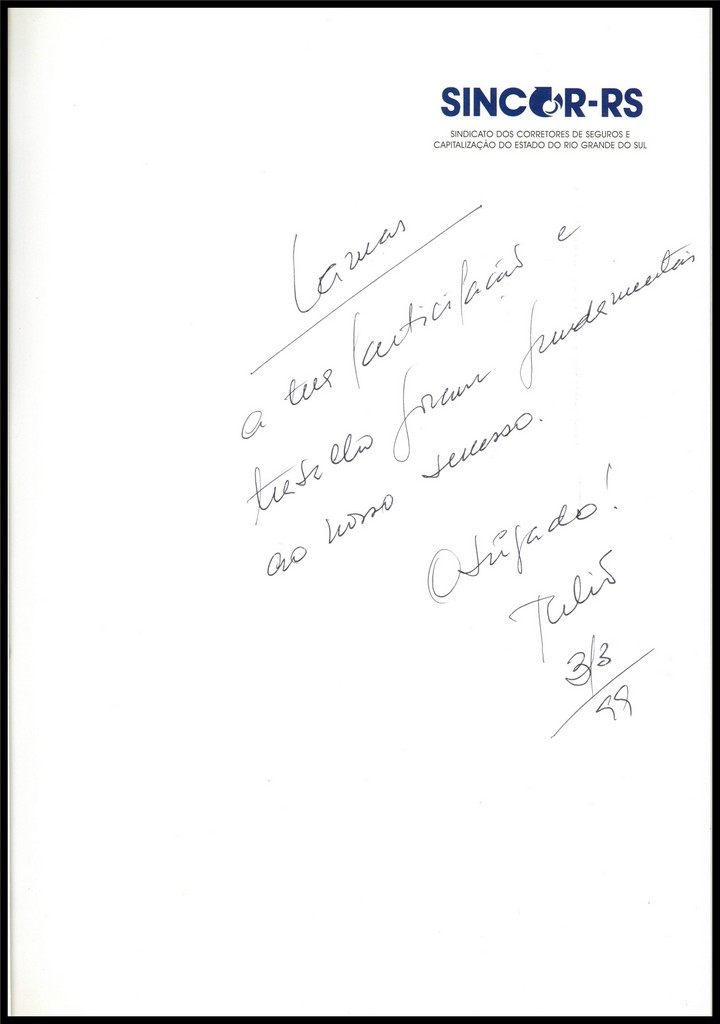 SINCOR-RS
SINDICATO DOS CORRETORES DE SEGUROS E
CAPITALIZAÇÃO DO ESTADO DO RIO GRANDE DO SUL
a tua participação e
trabalho foram fundamentais
ao nosso sucesso.
Obrigado!
Tulio
3/3
99